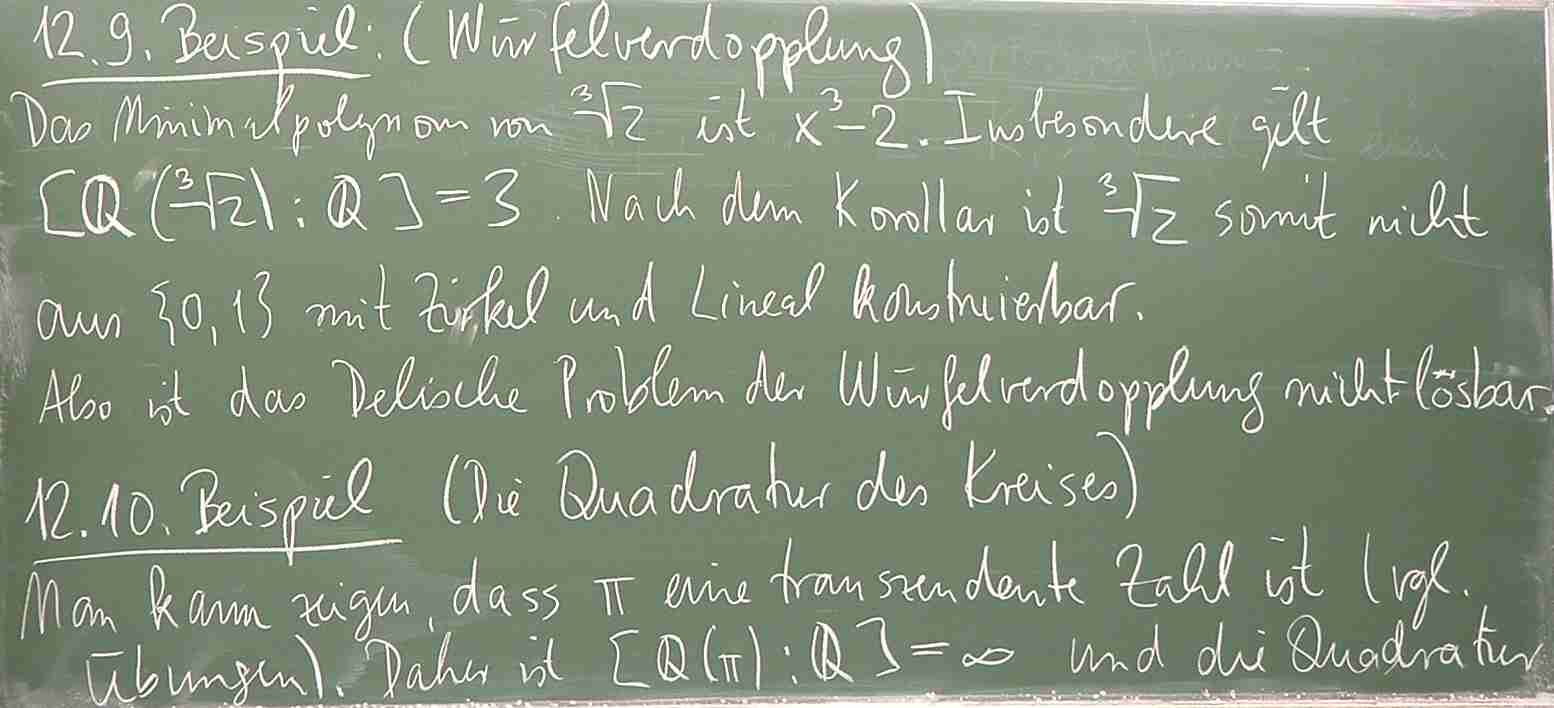 12.9. Beispiel: (Würfelverdopplung)
Das Minimalpolynom von ∛2 ist x³-2. Insbesondere gilt
[ℚ(∛2) : ℚ] = 3. Nach dem Korollar ist ∛2 somit nicht
aus {0,1} mit Zirkel und Lineal konstruierbar.
Also ist das Delische Problem der Würfelverdopplung nicht lösbar.
12.10. Beispiel (Die Quadratur des Kreises)
Man kann zeigen, dass π eine transzendente Zahl ist (vgl.
Übungen). Daher ist [ℚ(π) : ℚ] = ∞ und die Quadratur